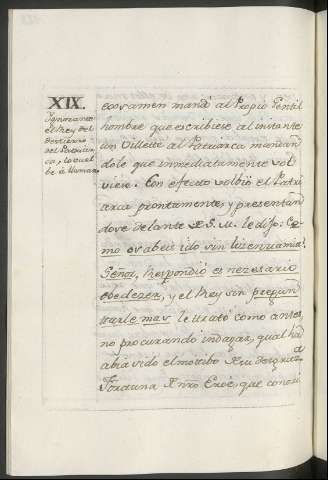 XIX.
Ignorante
el Rey del
destierro
del Patriar
ca, lo vuel
be à llamar
ecosamen mandò al Propio Gentil
hombre que escribiese al instante
un Villette al Patriarca mandan
dole que immediatamente vol
viese. Con efecto volbiò el Patri
arca prontamente, y presentan
dose delante d S. M. le dijo: Co
mo os abeis ido sin lizenzamia?
Señor, Respondiò es nezesario
obedezer, y el Rey sin pregun
tarle mas le tratò como antes,
no procurando indagar, qual ha
abia sido el motibo
Fortuna d nro Eroe, que conosi